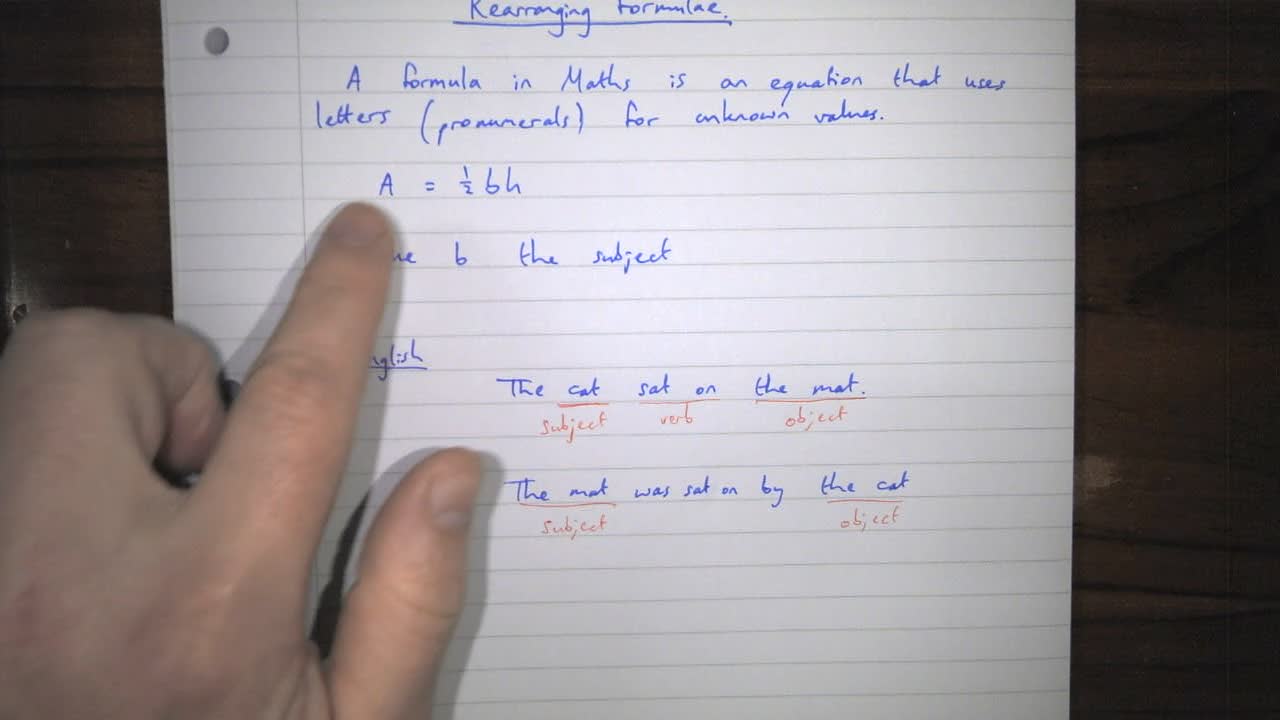 Rearranging formulae.
A formula in Maths is an equation that uses
letters (pronumerals) for unknown values.
A = ½ bh
b the subject
The cat sat on the mat.
subject verb object
The mat was sat on by the cat
subject object